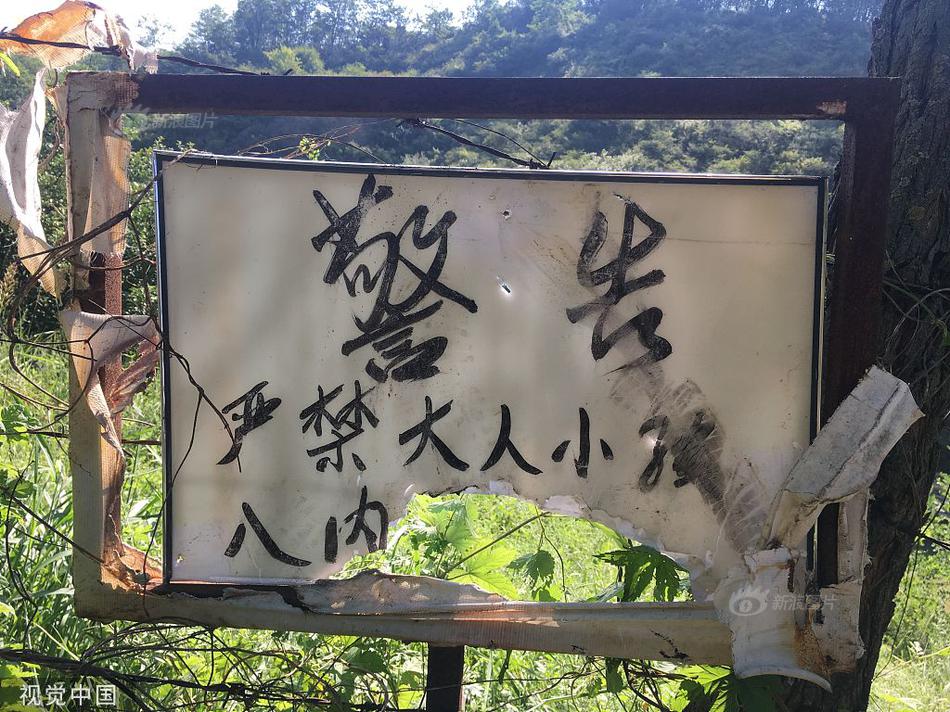 警告
严禁大人小孩
入内
视觉中国
新浪图片
新浪图片